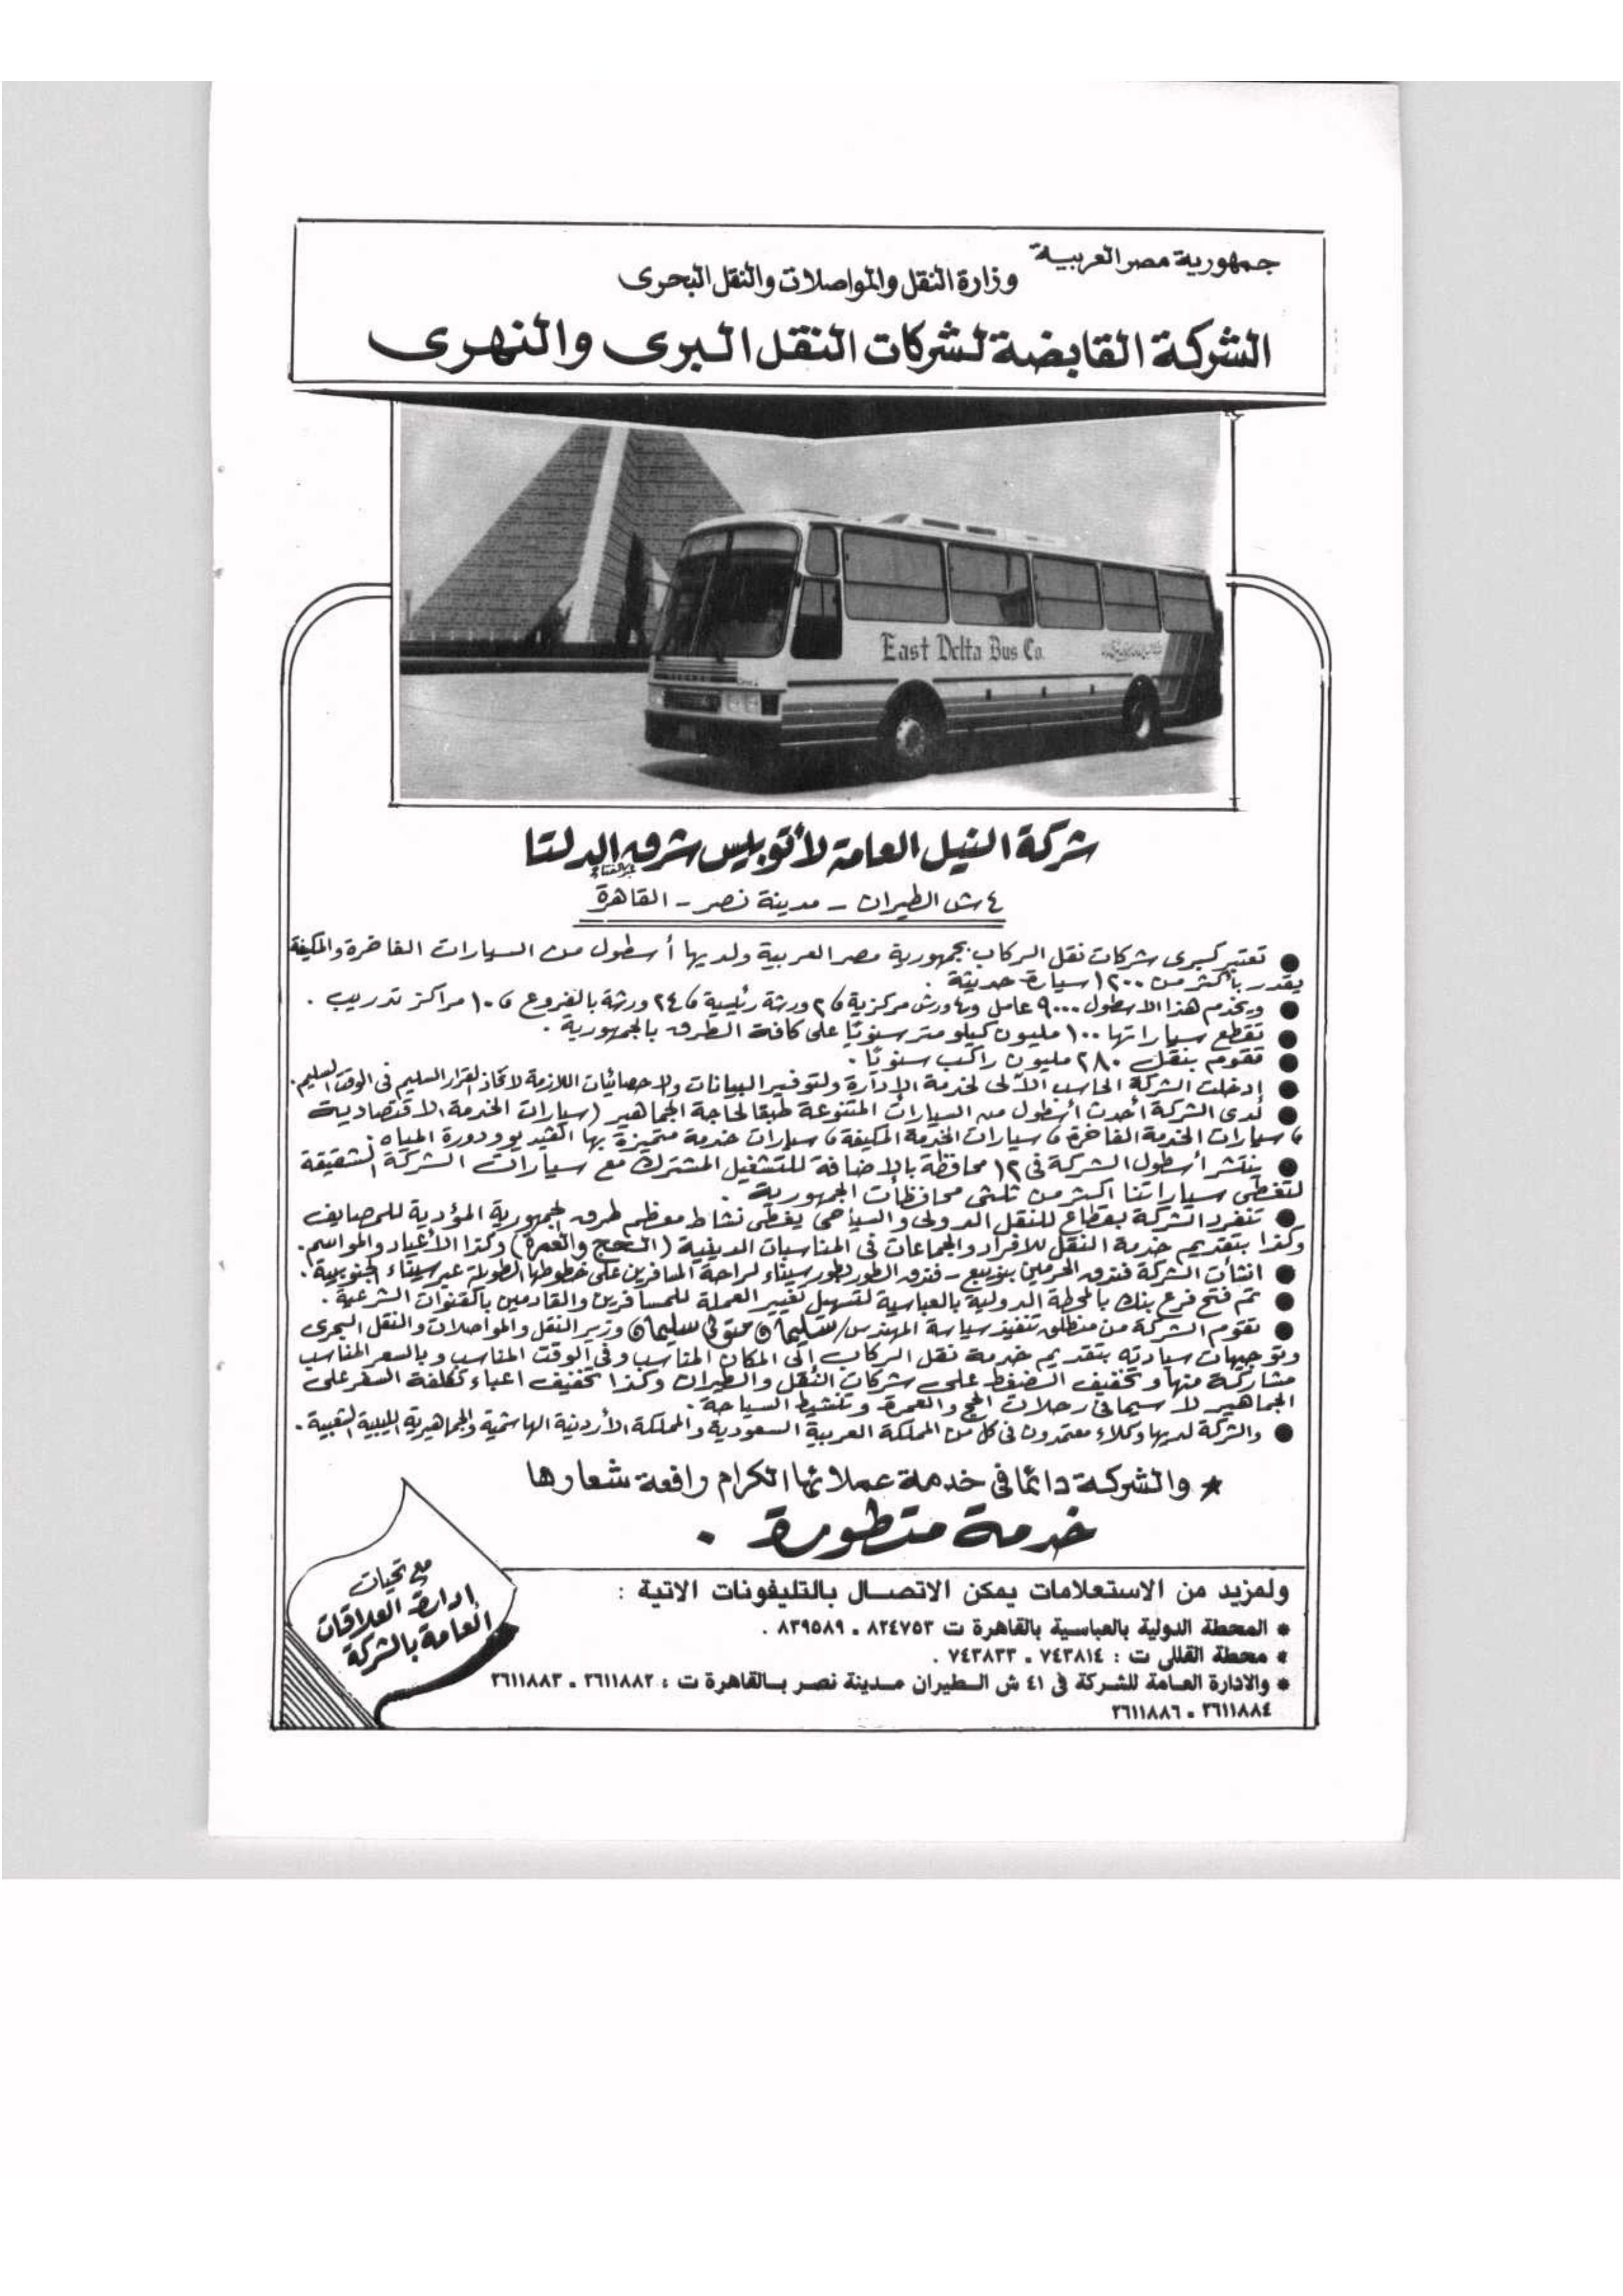 جمهورية مصر العربية
وزارة النقل والمواصلات والنقل البحرى
الشركة القابضة لشركات النقل البرى والنهرى
East Delta Bus Co.
شركة النيل العامة لأتوبيس شرق الدلتا
٤ ش الطيران - مدينة نصر - القاهرة
● تعتبر كبرى شركات نقل الركاب بجمهورية مصر العربية ولديها أسطول من السيارات الفاخرة والمكيفة
يقدر بأكثر من ١٢٠٠ سيارة حديثة .
● ويخدم هذا الاسطول ٩٠٠٠ عامل و ورش مركزية و ٢ ورشة رئيسية و ٢٤ ورشة بالفروع و ١٠ مراكز تدريب .
● تقطع سياراتها ١٠٠ مليون كيلو متر سنويًا على كافة الطرق بالجمهورية .
● تقوم بنقل ٢٨٠ مليون راكب سنويًا .
● إدخلت الشركة الحاسب الآلى لخدمة الإدارة ولتوفير البيانات والاحصائيات اللازمة لاتخاذ القرار السليم فى الوقت السليم .
● لدى الشركة أحدث أسطول من السيارات المتنوعة طبقا لحاجة الجماهير (سيارات الخدمة الاقتصادية
و سيارات الخدمة الفاخرة و سيارات الخدمة المكيفة و سيارات خدمة متميزة بها الفيديو ودورة المياه .
● ينتشر أسطول الشركة فى ١٢ محافظة بالإضافة للتشغيل المشترك مع سيارات الشركة الشقيقة
لتغطى سياراتنا اكثر من ثلثى محافظات الجمهورية .
● تنفرد الشركة بقطاع للنقل الدولى والسياحى يغطى نشاط معظم طرق الجمهورية المؤدية للمصايف
وكذا بتقديم خدمة النقل للافراد والجماعات فى المناسبات الدينية (الحج والعمرة) وكذا الأعياد والمواسم .
● انشأت الشركة فندق الحرمين بنويبع - فندق الطور بطور سيناء لراحة المسافرين على خطوطها الطويلة عبر سيناء الجنوبية .
● تم فتح فرع بنك بالمحطة الدولية بالعباسية لتسهيل تغيير العملة للمسافرين والقادمين بالقنوات الشرعية .
● تقوم الشركة من منطلق تنفيذ سياسة المهندس/ سليمان متولى سليمان وزير النقل والمواصلات والنقل البحرى
وتوجيهات سيادته بتقديم خدمة نقل الركاب إلى المكان المناسب وفى الوقت المناسب وبالسعر المناسب
مشاركة منها وتخفيف الضغط على شركات النقل والطيران وكذا تخفيف اعباء تكلفة السفر على
الجماهير لا سيما فى رحلات الحج والعمرة وتنشيط السياحة .
● والشركة لديها وكلاء معتمدون فى كل من المملكة العربية السعودية والمملكة الأردنية الهاشمية والجماهيرية الليبية الشعبية .
★ والشركة دائمًا فى خدمة عملائها الكرام رافعة شعارها
خدمة متطورة .
مع تحيات
إدارة العلاقات
العامة بالشركة
ولمزيد من الاستعلامات يمكن الاتصال بالتليفونات الاتية :
* المحطة الدولية بالعباسية بالقاهرة ت ٨٢٤٧٥٣ ، ٨٣٩٥٨٩ .
* محطة القللى ت : ٧٤٣٨١٤ ، ٧٤٣٨٣٣ .
* والادارة العامة للشركة فى ٤١ ش الطيران مدينة نصر بالقاهرة ت : ٢٦١١٨٨٢ ، ٢٦١١٨٨٣
٢٦١١٨٨٤ ، ٢٦١١٨٨٦